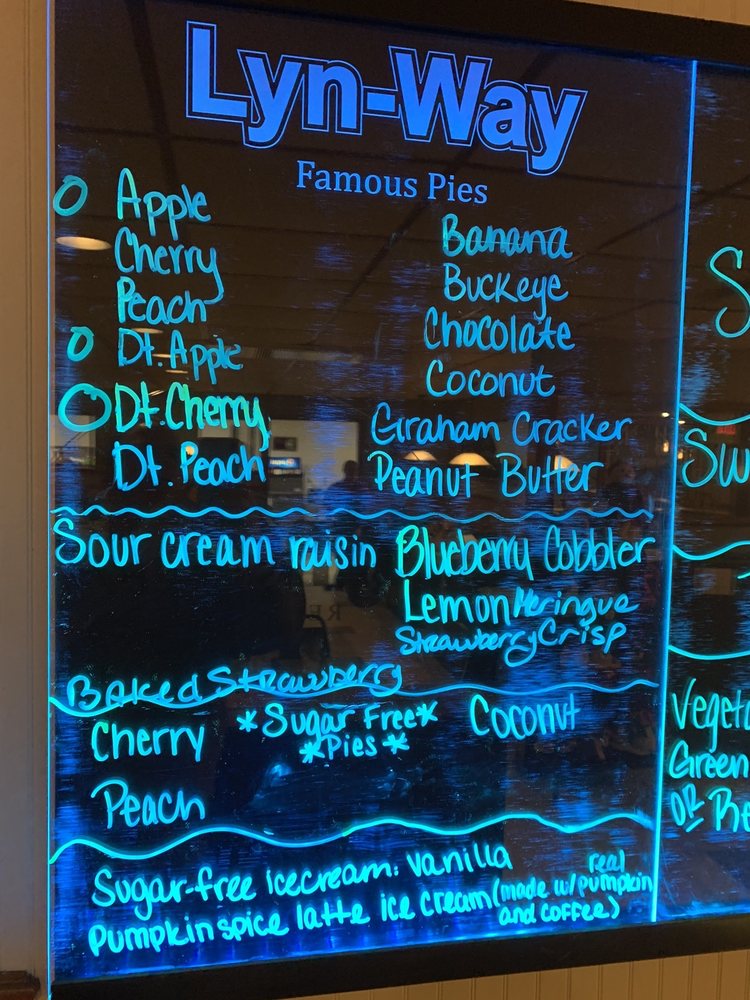 Lyn-Way
Famous Pies
O Apple
Cherry
Peach
O Dt. Apple
O Dt. Cherry
Dt. Peach
Banana
Buckeye
Chocolate
Coconut
Graham Cracker
Peanut Butter
Sour cream raisin
Blueberry Cobbler
Lemon Meringue
Strawberry Crisp
Baked Strawberry
*Sugar Free*
*Pies*
Cherry
Peach
Coconut
Sugar-free icecream: vanilla
Pumpkin spice latte ice cream (made w/ real pumpkin
and coffee)
Green
OR